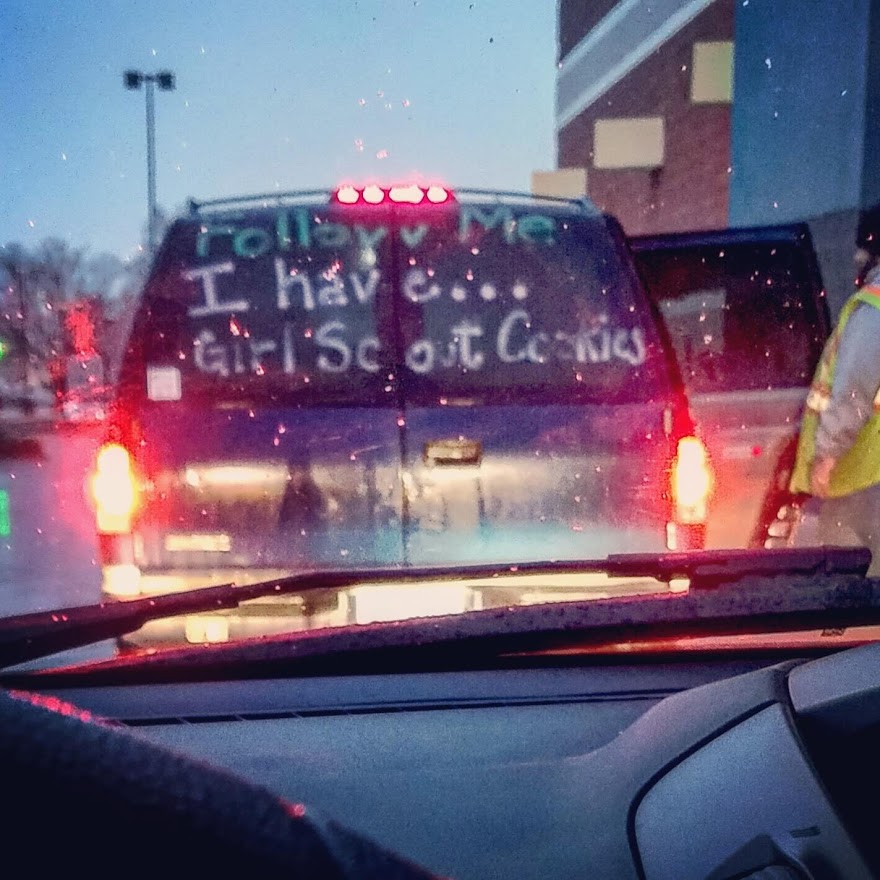 Follow Me
I have...
Girl Scout Cookies